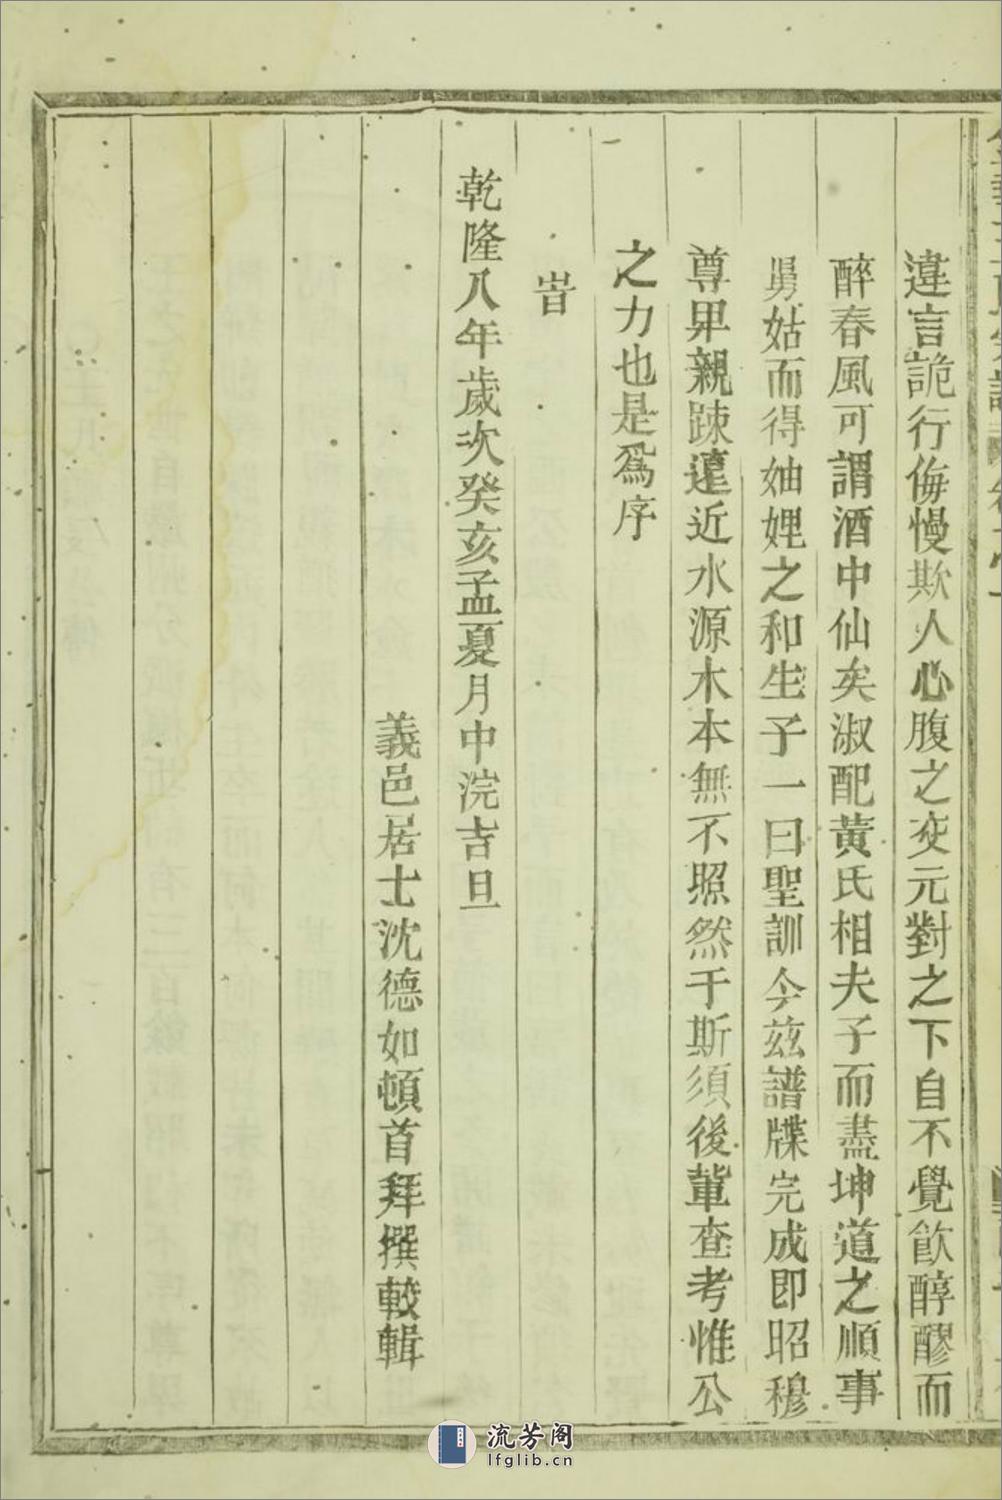 違言詭行侮慢欺人心腹之交元對之下自不覺飲醇醪而
醉春風可謂酒中仙矣淑配黃氏相夫子而盡坤道之順事
舅姑而得妯娌之和生子一曰聖訓今茲譜牒完成即昭穆
尊卑親踈遠近水源木本無不照然于斯須後軰查考惟公
之力也是爲序
旹
乾隆八年歲次癸亥孟夏月中浣吉旦
義邑居士沈德如頓首拜撰較輯
流芳阁
lfglib.cn